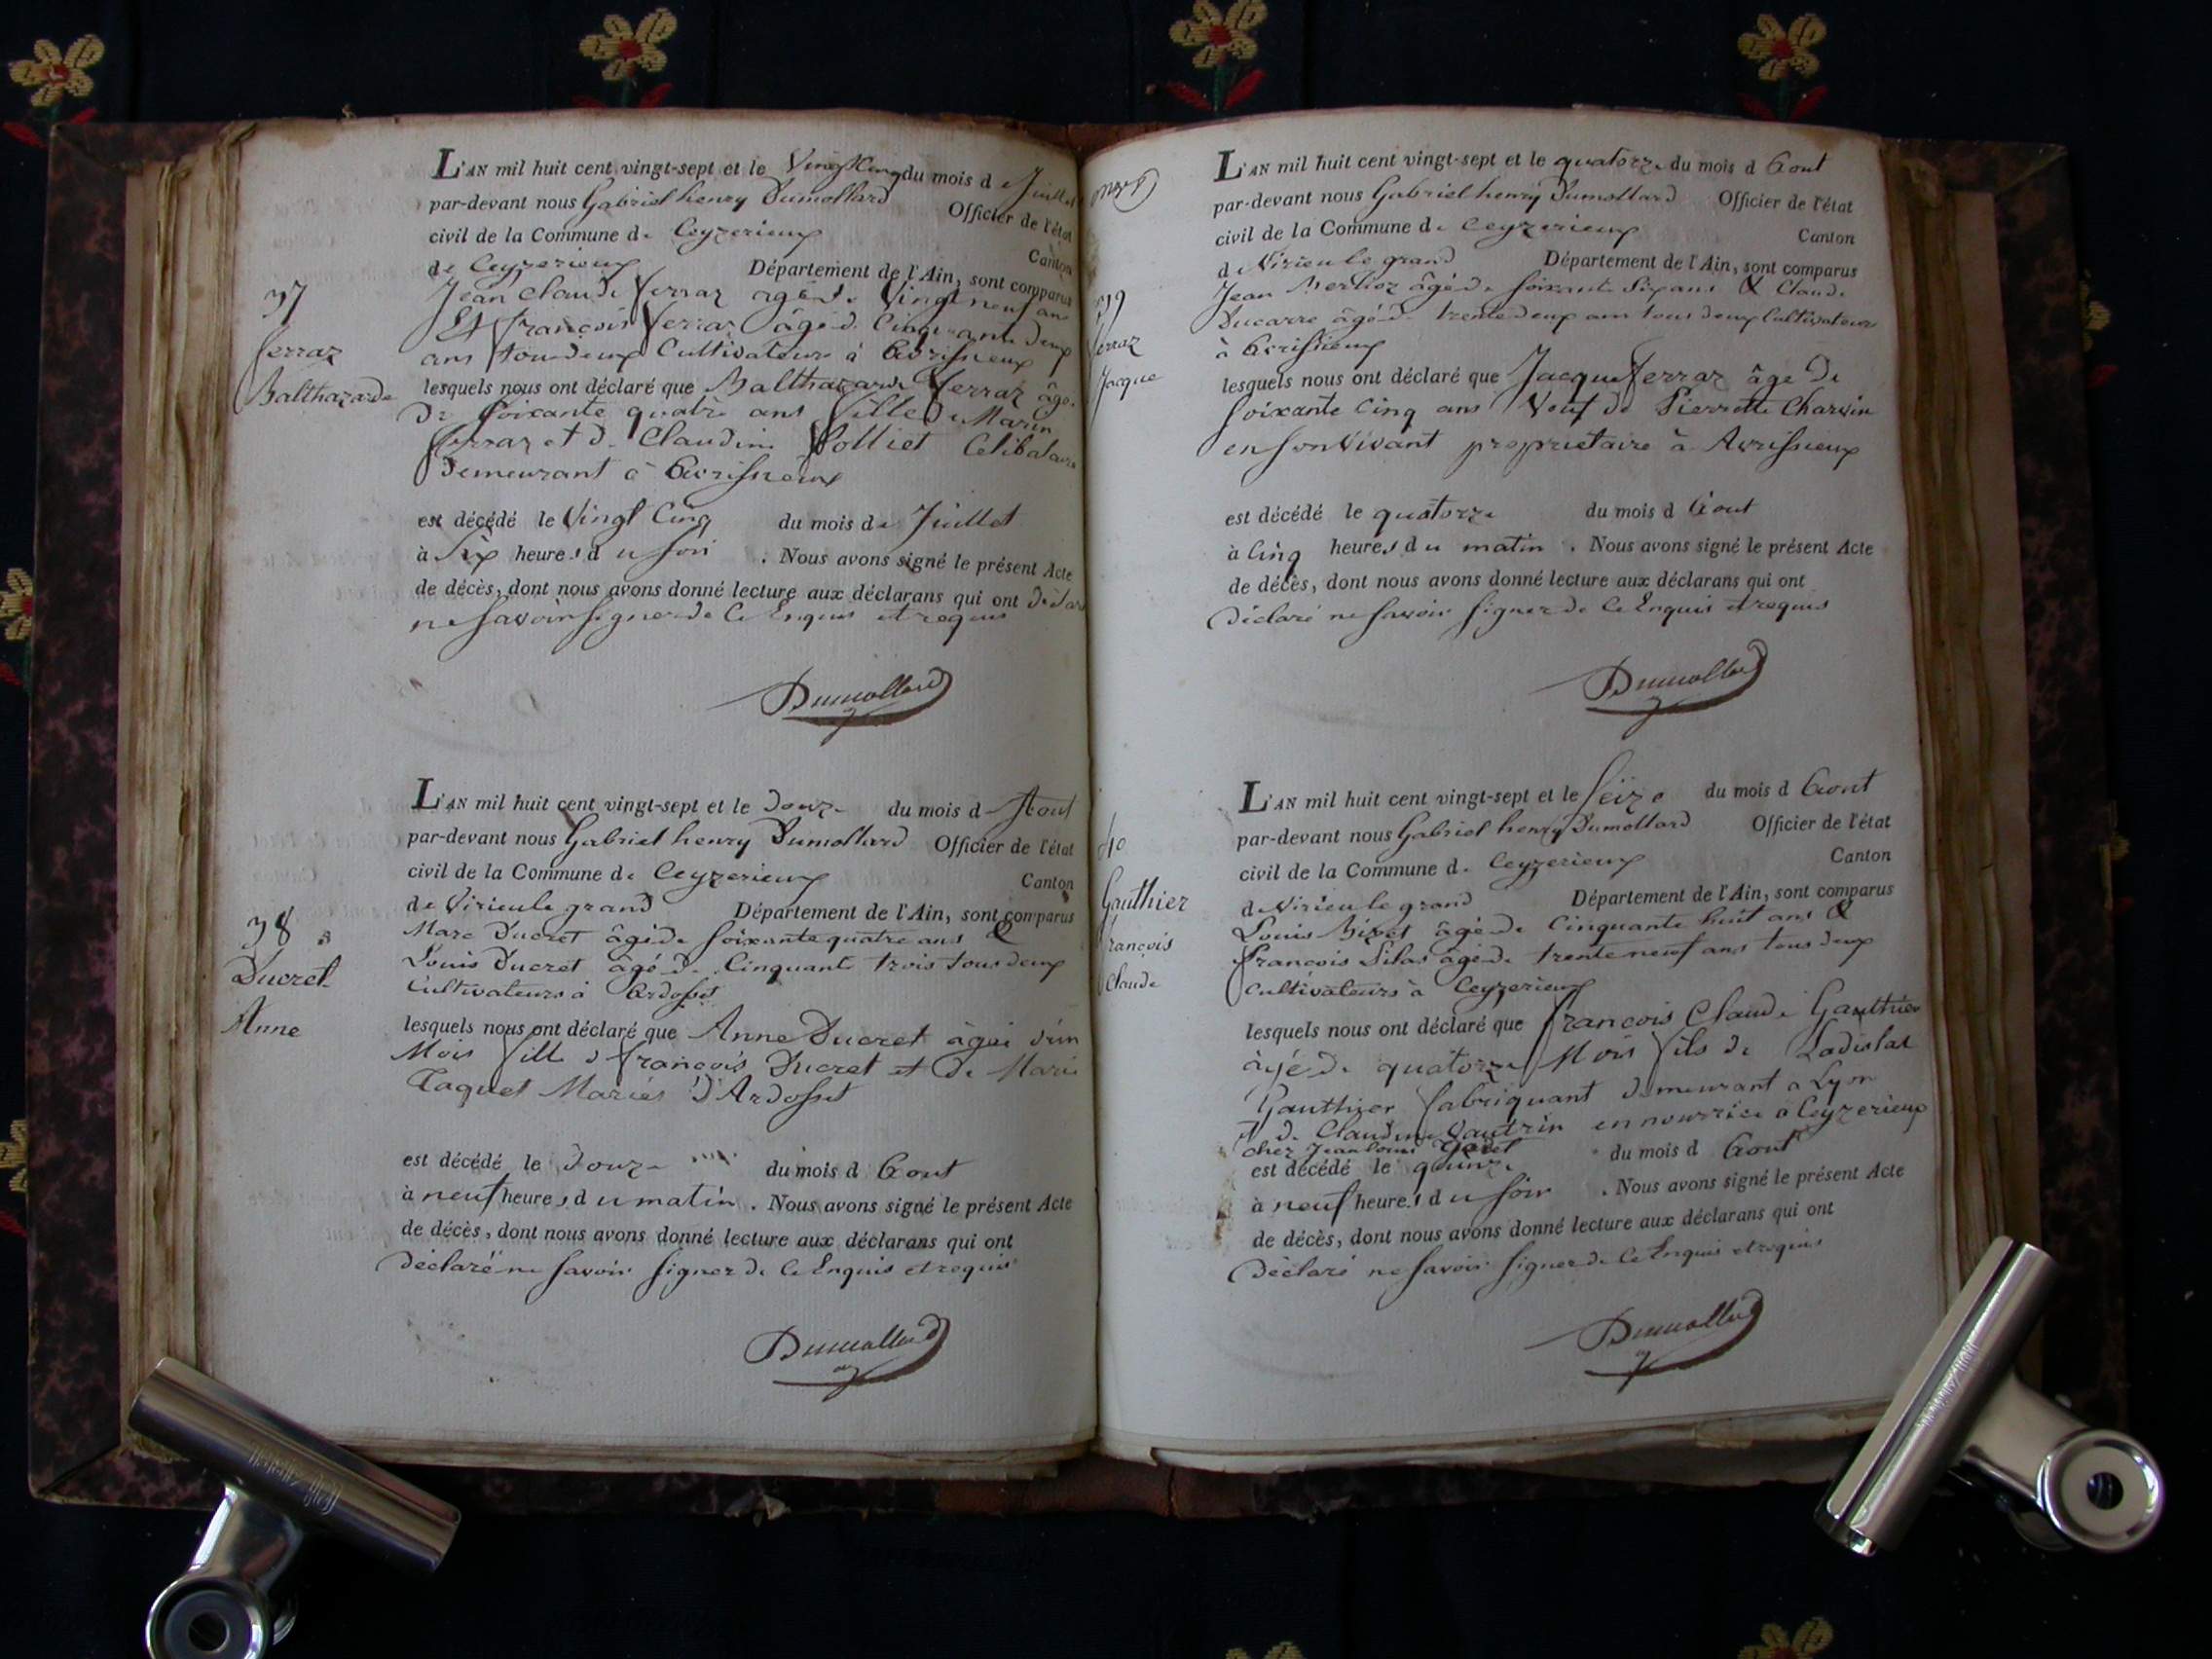 37
Ferraz
Balthazarde
L'AN mil huit cent vingt-sept et le Vingt Cinq du mois de Juillet
par-devant nous Gabriel henry Dumollard Officier de l'état
civil de la Commune de Ceyzerieux Canton
de Ceyzerieux Département de l'Ain, sont comparus
Jean Claude Ferraz agé de Vingt neuf ans
Et François Ferraz âgé de Cinquante deux
ans tous deux Cultivateurs à Avrissieux
lesquels nous ont déclaré que Balthazarde Ferraz âgé
De soixante quatre ans fille De Marin
Ferraz et de Claudine Polliet Celibataire
Demeurant à Avrissieux
est décédé le Vingt Cinq du mois de Juillet
à Six heures du soir . Nous avons signé le présent Acte
de décès, dont nous avons donné lecture aux déclarans qui ont déclaré
ne savoir signer de Ce Enquis et requis
Dumollard
38
Ducret
Anne
L'AN mil huit cent vingt-sept et le Douze du mois d Aout
par-devant nous Gabriel henry Dumollard Officier de l'état
civil de la Commune de Ceyzerieux Canton
de Virieu le grand Département de l'Ain, sont comparus
Marc Ducret âgé de soixante quatre ans &
Louis Ducret âgé de Cinquante trois tous deux
Cultivateurs à Ardosset
lesquels nous ont déclaré que Anne Ducret âgée d'un
Mois fille de François Ducret et De Marie
Taquet Mariés D'Ardosset
est décédé le Douze du mois d Aout
à neuf heures du matin . Nous avons signé le présent Acte
de décès, dont nous avons donné lecture aux déclarans qui ont
Déclaré ne savoir signer de Ce Enquis et requis
Dumollard
39
Ferraz
Jacque
L'AN mil huit cent vingt-sept et le quatorze du mois d Aout
par-devant nous Gabriel henry Dumollard Officier de l'état
civil de la Commune de Ceyzerieux Canton
d Virieu le grand Département de l'Ain, sont comparus
Jean Berlioz âgé de soixante Six ans & Claude
Ducarre âgé de trente deux ans tous deux Cultivateurs
à Avrissieux
lesquels nous ont déclaré que Jacque Ferraz âge De
soixante Cinq ans Veuf de Pierrette Charvin
en son Vivant proprietaire à Avrissieux
est décédé le quatorze du mois d Aout
à Cinq heures du matin . Nous avons signé le présent Acte
de décès, dont nous avons donné lecture aux déclarans qui ont
Déclaré ne savoir signer de Ce Enquis et requis
Dumollard
40
Gauthier
François
Claude
L'AN mil huit cent vingt-sept et le Seize du mois d Aout
par-devant nous Gabriel henry Dumollard Officier de l'état
civil de la Commune de Ceyzerieux Canton
de Virieu le grand Département de l'Ain, sont comparus
Louis Bizet âgé de Cinquante huit ans &
François Silas âgé de trente neuf ans tous deux
Cultivateurs à Ceyzerieux
lesquels nous ont déclaré que François Claude Gauthier
âgé De quatorze Mois fils de Ladislas
Gauthier fabriquant demeurant a Lyon
et de Claudine Vautrin en nourrice à Ceyzerieux
chez Jean Louis
est décédé le quinze du mois d Aout
à neuf heures du soir . Nous avons signé le présent Acte
de décès, dont nous avons donné lecture aux déclarans qui ont
Déclaré ne savoir signer de Ce Enquis et requis
Dumollard